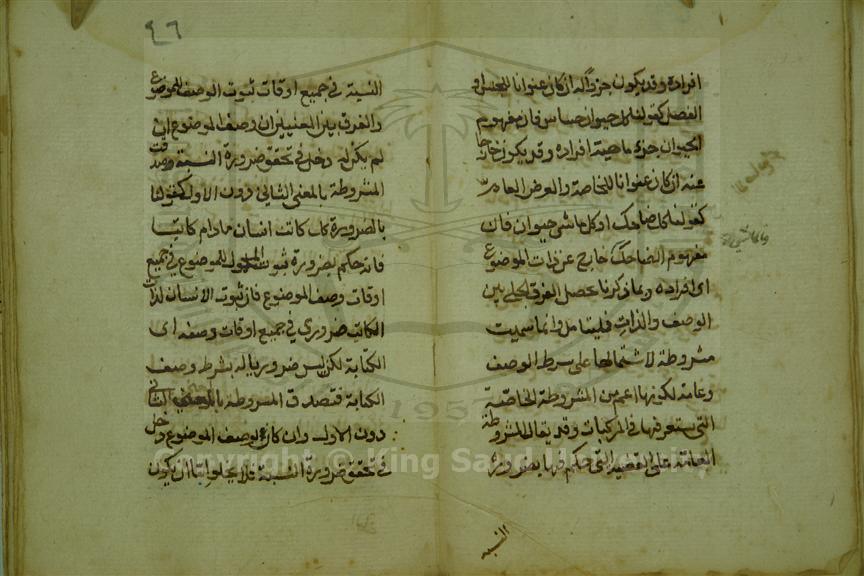 افراده وقد يكون جزءًا له ان كان عنوانا للجنس او
الفصل كقولنا كل حيوان حساس فان مفهوم
الحيوان جزء ماهية افراده وقد يكون خارجا
عنه ان كان عنوانا للخاصة والعرض العام
كقولنا كل ضاحك او كل ماشى حيوان فان
مفهوم الضاحك خارج عن ذات الموضوع
اى افراده وبما ذكرنا حصل الفرق الجلى بين
الوصف والذات فليتامل وانما سميت
مشروطة لاشتمالها على شرط الوصف
وعامة لكونها اعم من المشروطة الخاصة
التى ستعرفها فى المركبات وقد يقال المشروطة
العامة على القضية التى حكم فيها بضرورة
النسبة
٩٦
النسبة فى جميع اوقات ثبوت الوصف للموضوع
والفرق بين المعنيين ان وصف الموضوع ان
لم يكن له دخل فى تحقق ضرورة النسبة صدقت
المشروطة بالمعنى الثانى دون الاول كقولنا
بالضرورة كل كاتب انسان مادام كاتبا
فانه حكم بضرورة ثبوت المحمول للموضوع فى جميع
اوقات وصف الموضوع فان ثبوت الانسان لذات
الكاتب ضرورى فى جميع اوقات وصفه اى
الكتابة لكن ليس ضروريا له بشرط وصف
الكتابة فتصدق المشروطة بالمعنى الثانى
دون الاول وان كان لوصف الموضوع دخل
فى تحقق ضرورة النسبة فلا يخلو اما ان يكون
1957
Copyright © King Saud University